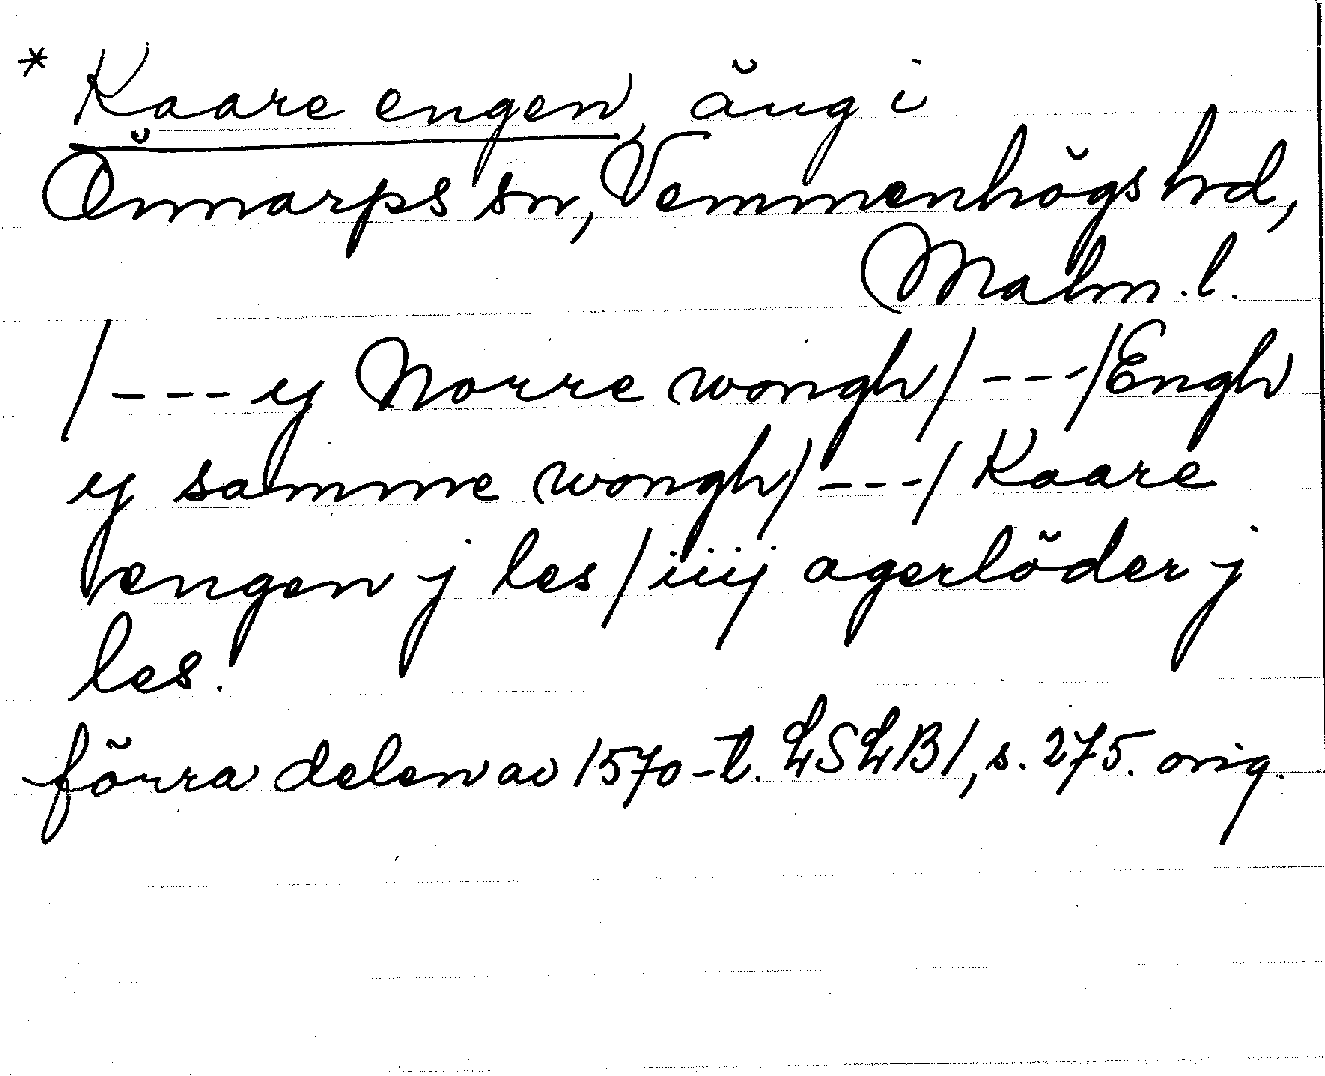 * Kaare engen, äng i
Önnarps sn, Vemmenhögs hd,
Malm. l.
/--- y Norre wongh/ ---/Engh
y samme wongh/ ---/ Kaare
engen j les/ iiij agerlöder j
les.
förra delen av 1570-t. LSLB1, s. 275. orig.